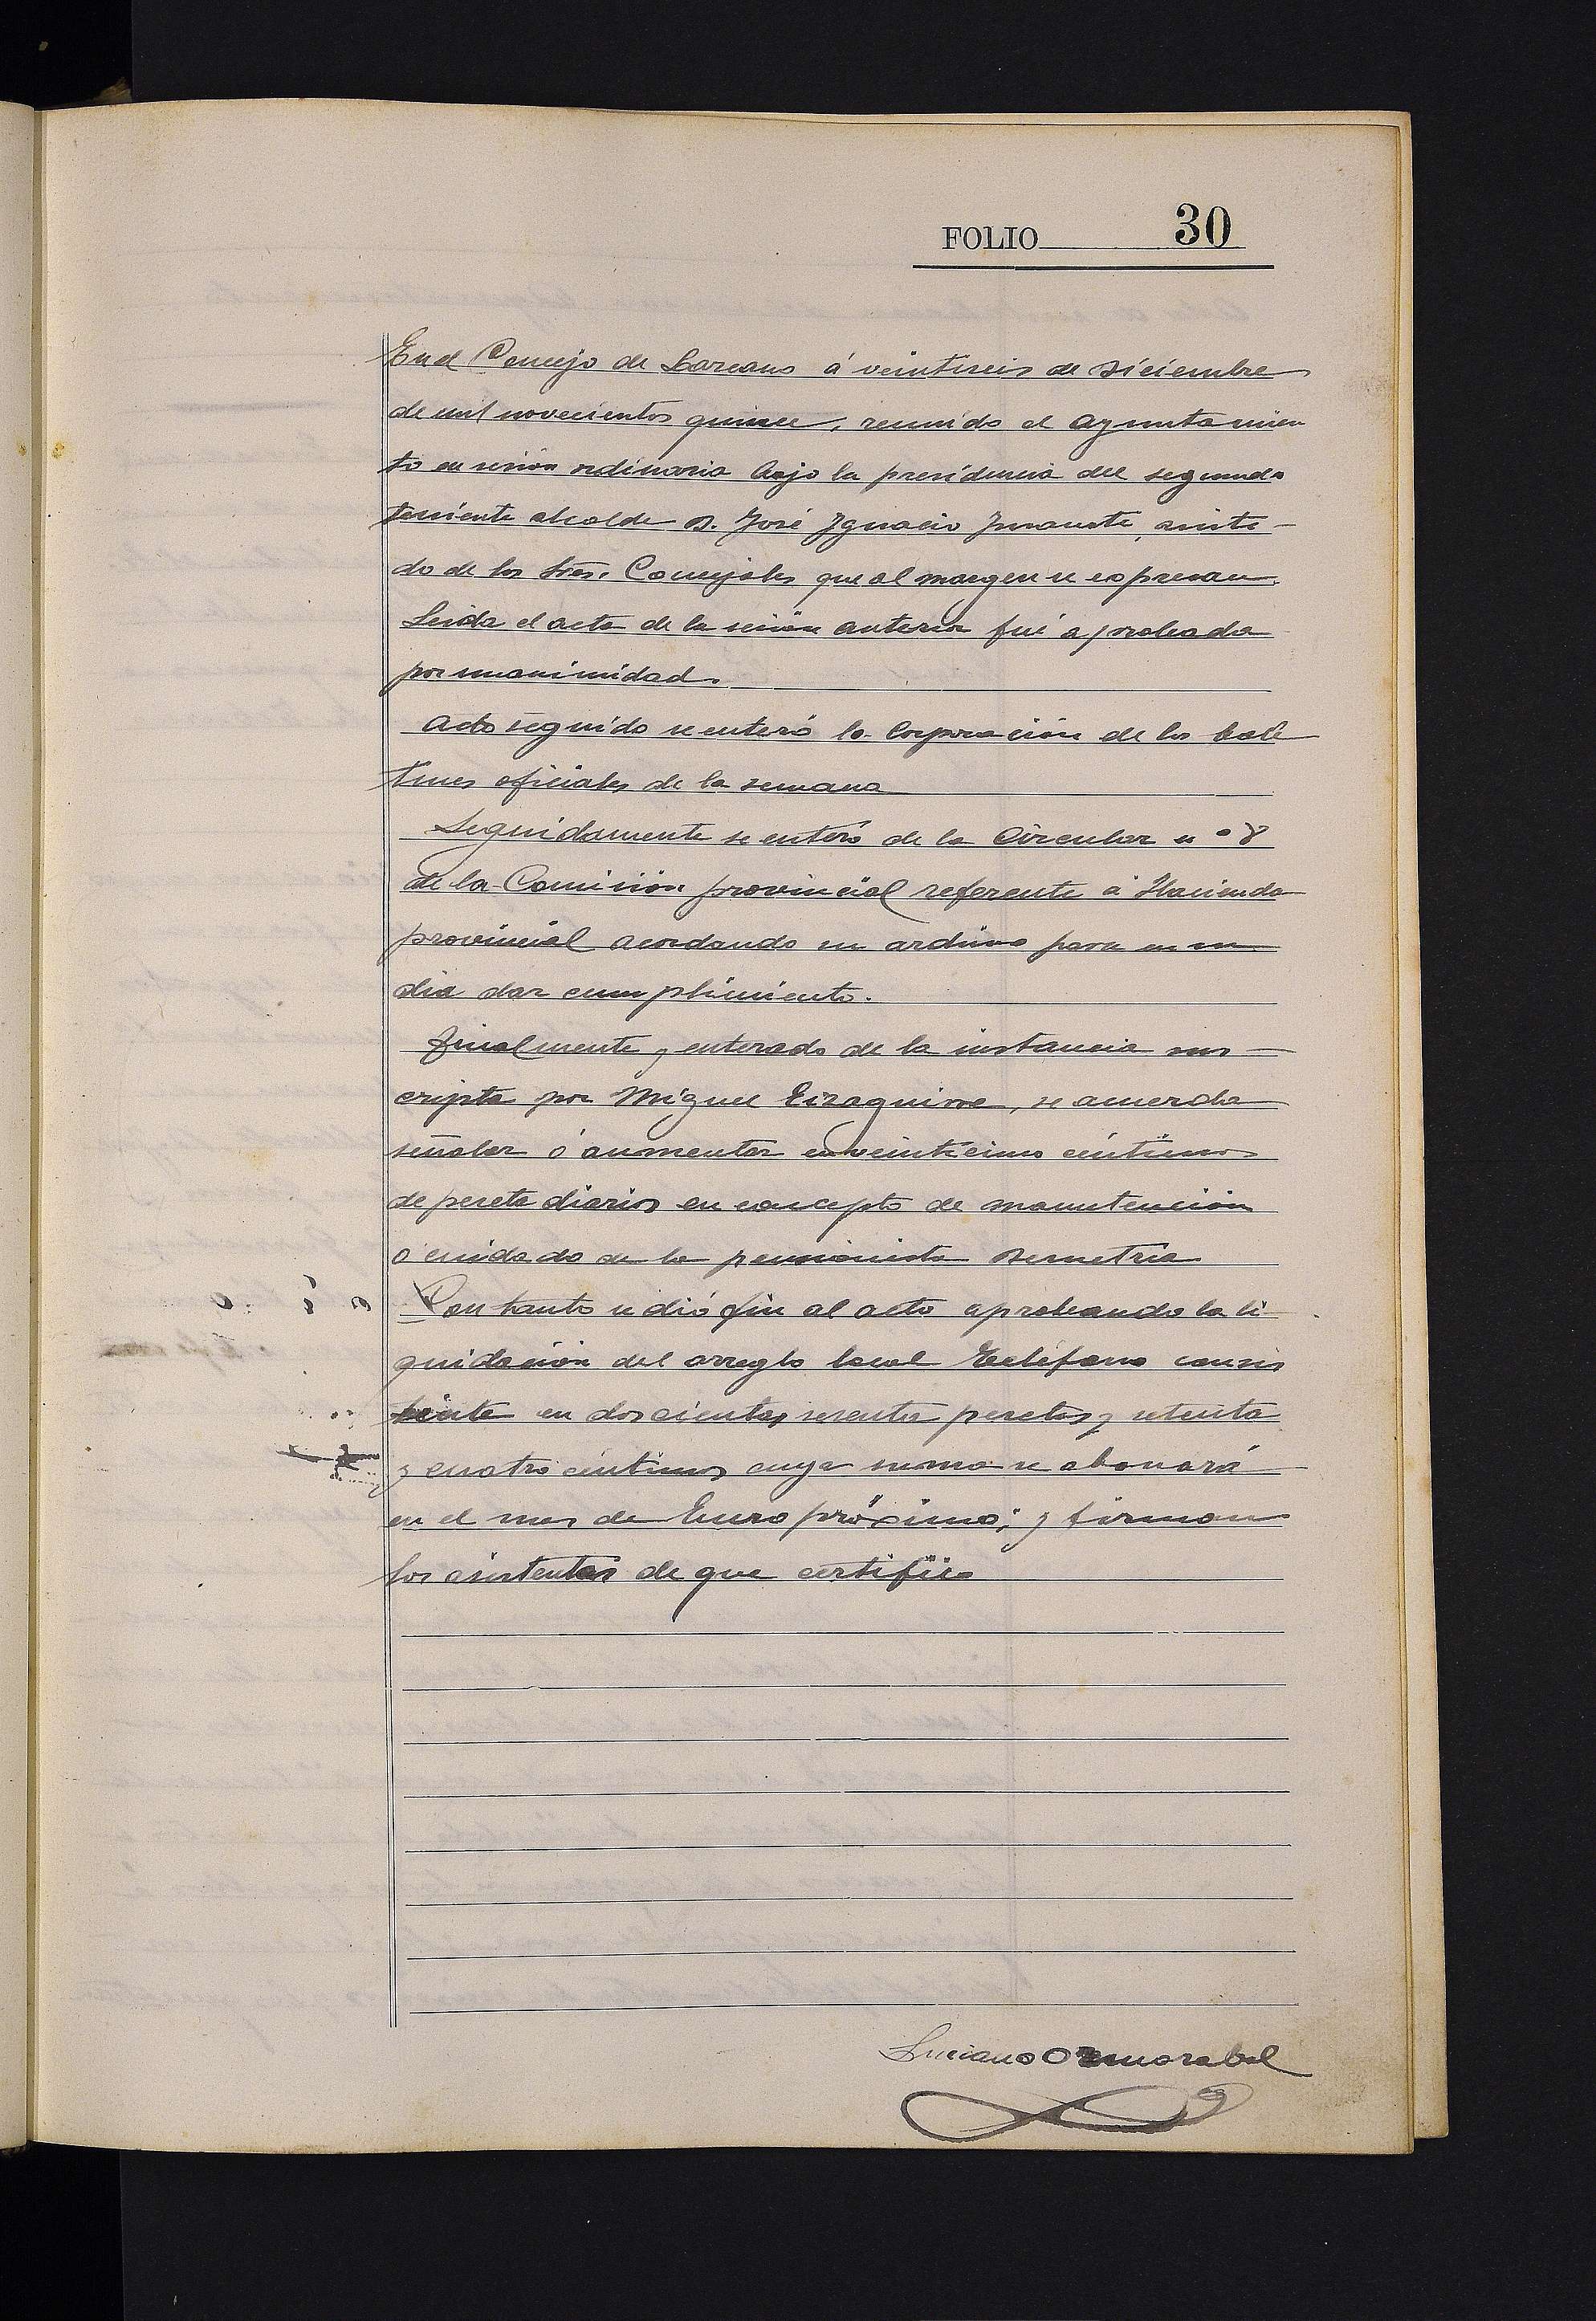 FOLIO 30
En el Concejo de Larcano á veintiseis de Diciembre
de mil novecientos quince, reunido el Ayuntamien
to en sesión ordinaria bajo la presidencia del segundo
teniente alcalde D. José Ygnacio asisti-
do de los Sres. Concejales que al margen se expresan.
Leida el acta de la sesión anterior fué aprobada
por unanimidad.
Acto seguido se enteró la Corporación de los bole
tines oficiales de la semana
Seguidamente se enteró de la Circular nº 8
de la Comisión provincial referente á Hacienda
provincial acordando su archivo para en su
dia dar cumplimiento.
Finalmente, enterado de la instancia sus-
cripta por Miguel Eizaguirre, se acuerda
señalar ó aumentar en veinticinco céntimos
de peseta diarios en concepto de manutención
ó cuidado de la pensionista Demetria
Con tanto se dió fin al acto aprobando la li-
quidación del arreglo local Teléfono consis
tente en doscientas sesenta pesetas y setenta
y cuatro céntimos cuya suma se abonará
en el mes de Enero próximo; y firman
los asistentes de que certifico
Luciano Ormazabal